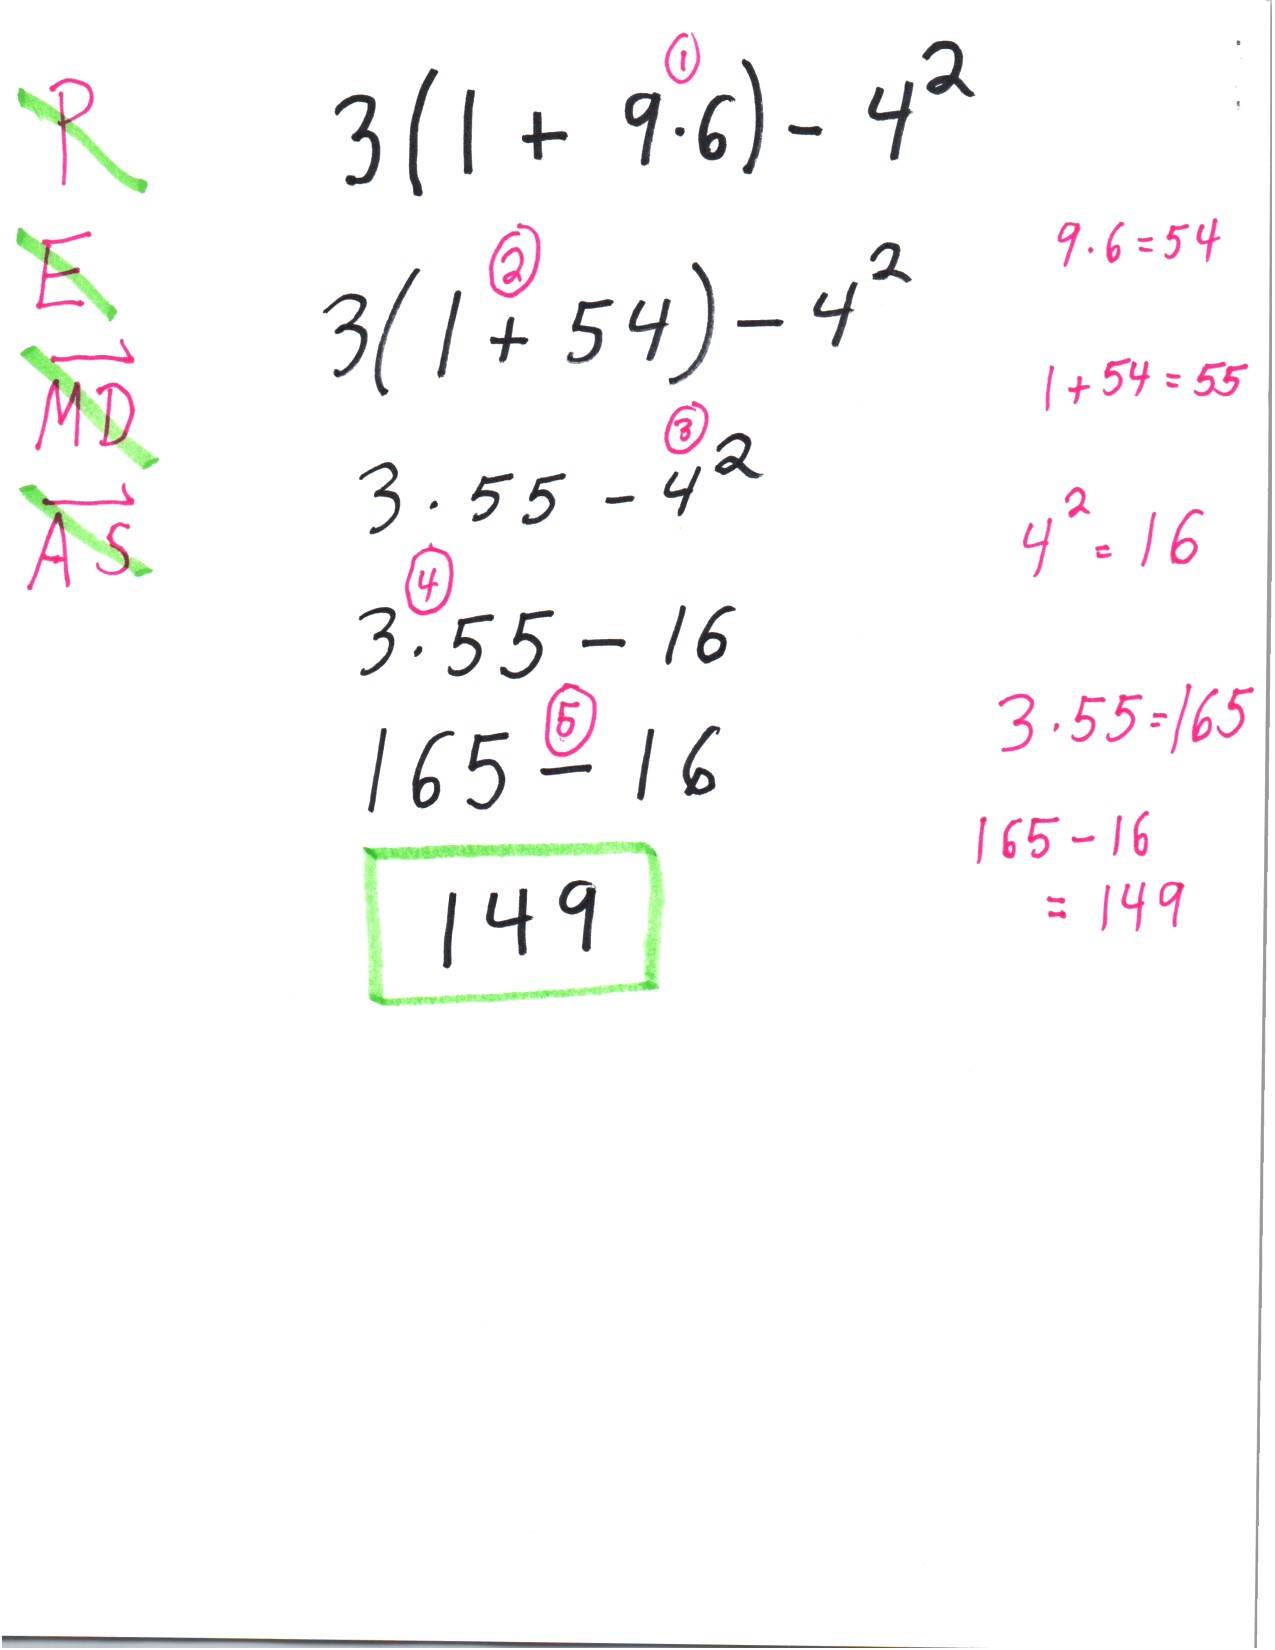 P
E
MD
AS
①
3(1 + 9·6) - 4²
②
3(1 + 54) - 4²
③
3 · 55 - 4²
④
3 · 55 - 16
⑤
165 - 16
149
9·6=54
1+54=55
4²=16
3·55=165
165-16
=149